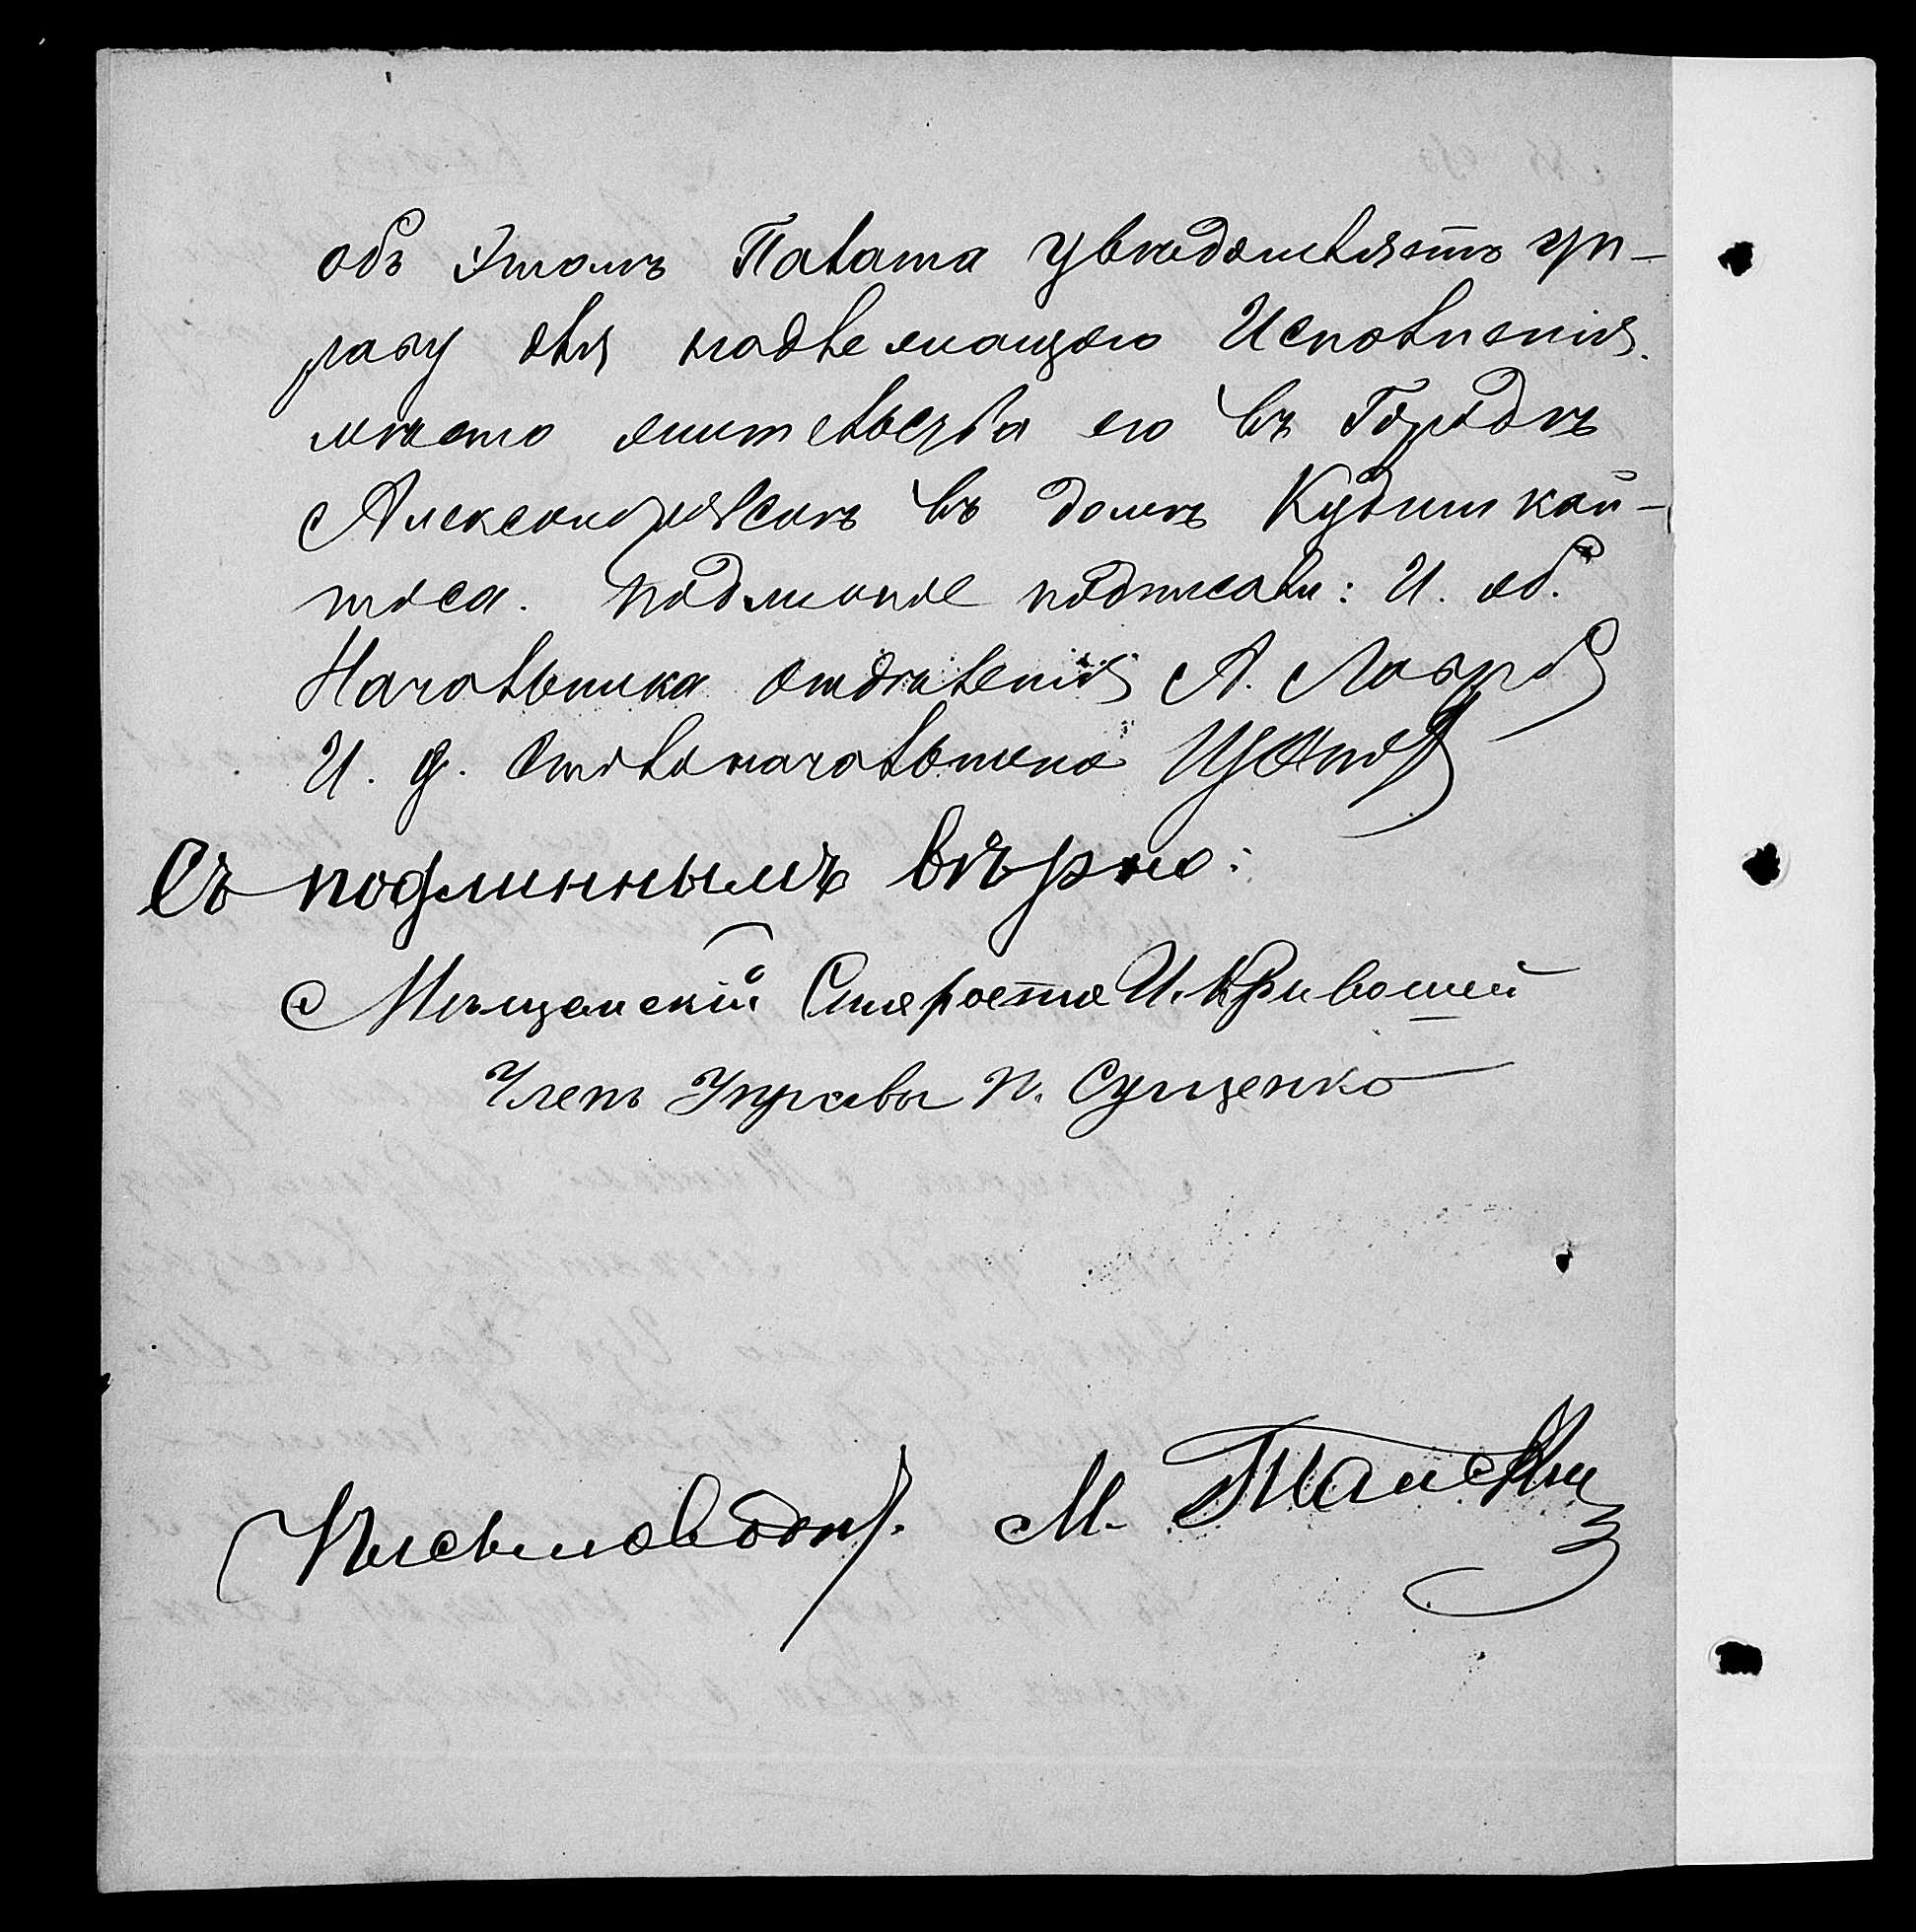 объ этомъ Палата увѣдомляетъ уп-
раву для надлежащаго Исполненія.
мѣсто жительства его въ Городѣ
Александровскѣ въ домѣ
тиса. подлинное подписали: И. об.
Начальника отдѣленія А. Лавров
И. д. Столоначальника
Съ подлиннымъ вѣрно:
Мѣщанскій Староста И. Кривошей
Членъ Управы П. Сущенко
Письмоводит. М.